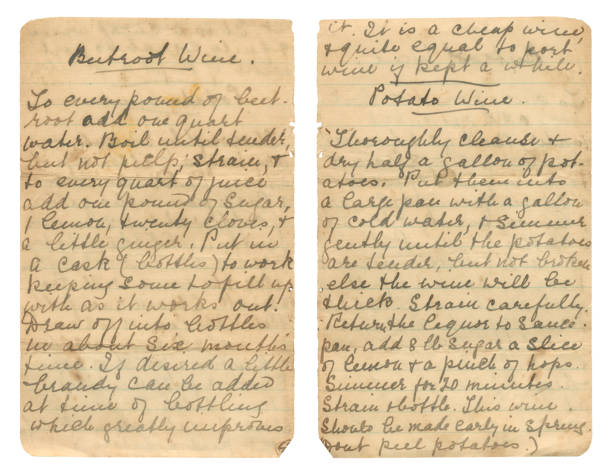 Beetroot Wine.
To every pound of beet-
root add one quart
water. Boil until tender,
but not pulp; strain, &
to every quart of juice
add one pound of sugar,
1 lemon, twenty cloves, &
a little ginger. Put in
a cask (bottles) to work
keeping some to fill up
with as it works out.
Draw off into bottles
in about six months
time. If desired a little
brandy can be added
at time of bottling
which greatly improves
it. It is a cheap wine,
& quite equal to port
wine if kept a while.
Potato Wine.
Thoroughly cleanse &
dry half a gallon of pot-
atoes. Put them into
a large pan with a gallon
of cold water, & simmer
gently until the potatoes
are tender, but not broken
else the wine will be
thick. Strain carefully.
Return the liquor to sauce-
pan, add 3 lb sugar a slice
of lemon & a pinch of hops.
Simmer for 20 minutes.
Strain & bottle. This wine
should be made early in Spring.
Dont peel potatoes.)